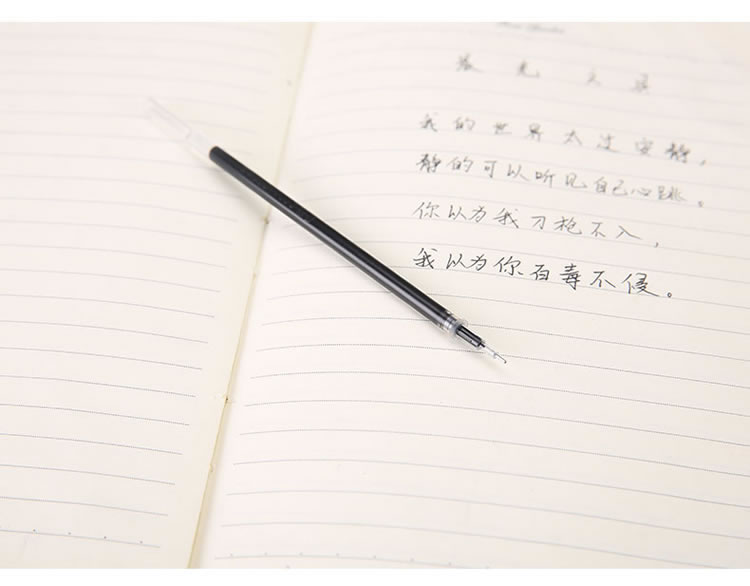 我的世界太过安静，
静的可以听见自己心跳。
你以为我刀枪不入，
我以为你百毒不侵。